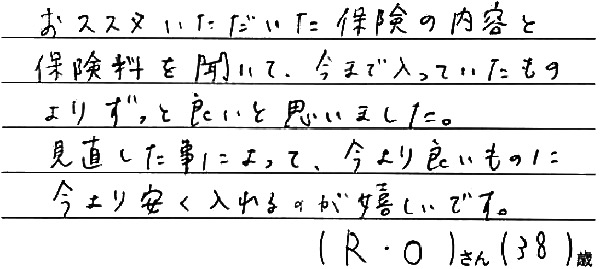 おススメいただいた保険の内容と
保険料を聞いて、今まで入っていたもの
よりずっと良いと思いました。
見直した事によって、今より良いものに
今より安く入れるのが嬉しいです。
(R・O)さん(38)歳